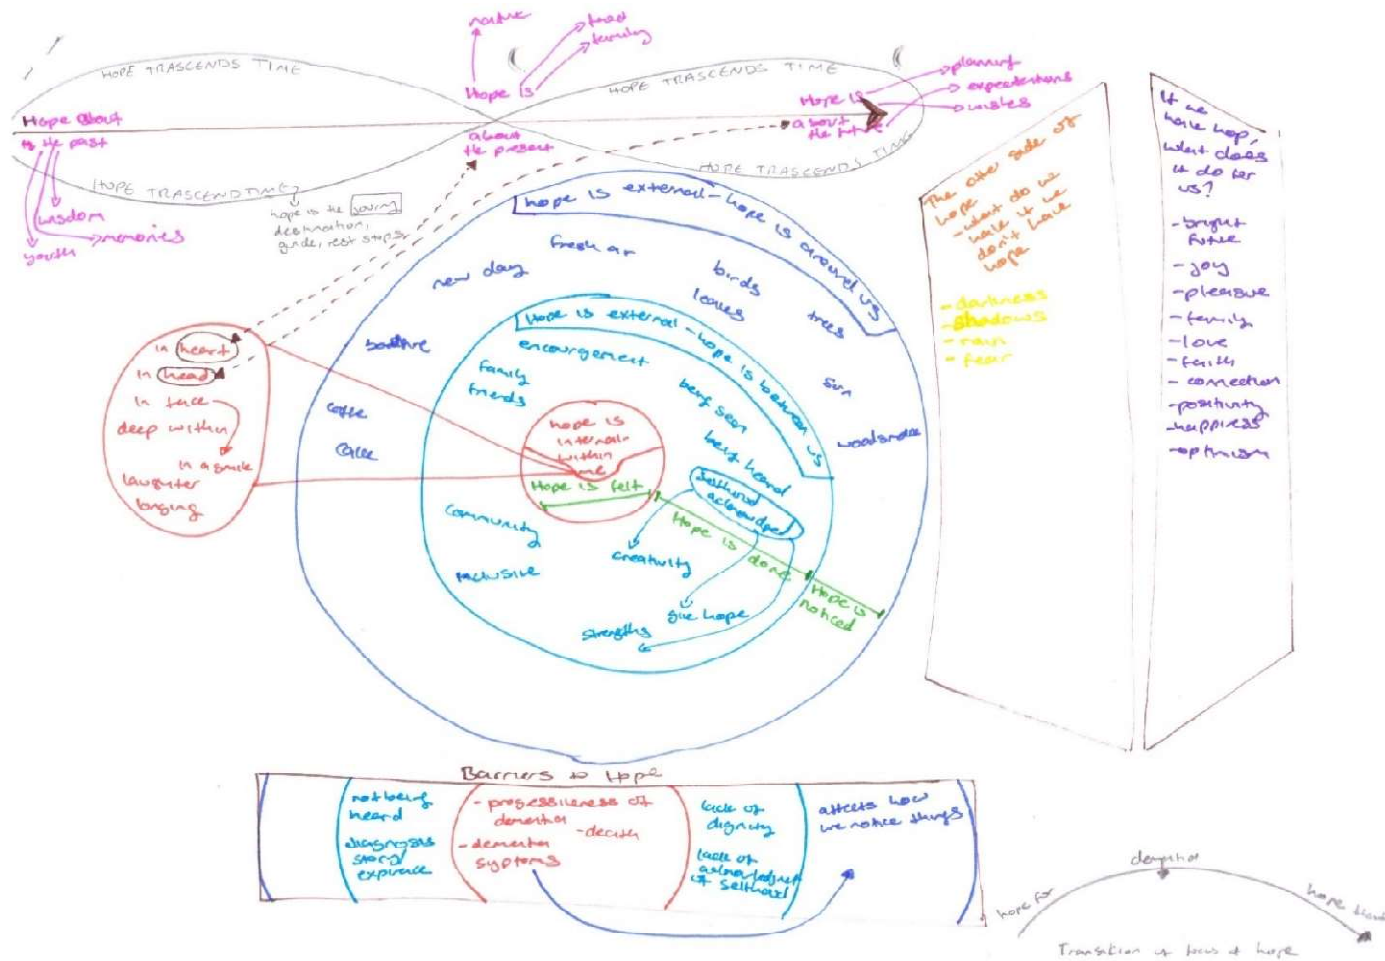 nature
trust
family
Hope is
HOPE TRASCENDS TIME
HOPE TRASCENDS TIME
planning
expectations
wishes
Hope is
about
the future
Hope about
the past
about
the present
HOPE TRASCEND TIME
HOPE TRASCENDS TIME
wisdom
memories
youth
hope is the journey
destination,
guide, rest stops
hope is external - hope is around us
fresh air
new day
birds
leaves
trees
bonfire
sun
coffee
cake
woodsmoke
Hope is external - hope is between us
encourgement
family
friends
being seen
being heard
selfhood
acknowledged
community
inclusive
creativity
give hope
strengths
hope is
internal-
within
me
Hope is felt
Hope is done
Hope is
noticed
in heart
in head
in face
deep within
in a smile
laughter
longing
The other side of
hope
- what do we
have if we
don't have
hope
- darkness
- shadows
- rain
- fear
If we
have hope,
what does
it do for
us?
- bright
future
- joy
- pleasure
- family
- love
- faith
- connection
- positivity
- happiness
- optimism
Barriers to Hope
not being
heard
diagnosis
story/
experience
- progressiveness of
dementia
- death
- dementia
syptoms
lack of
dignity
lack of
of selfhood
affects how
we notice things
hope for
hope
Transition of focus of hope